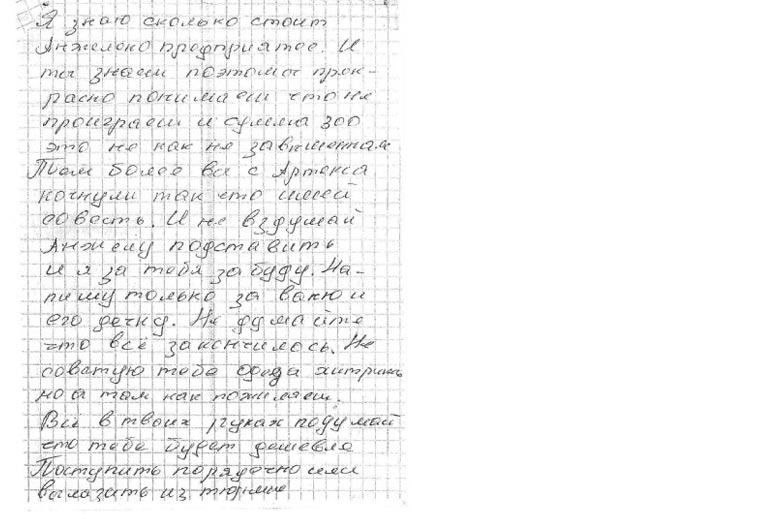 Я знаю сколько стоит
Анжелоно предприятее. И
ты знаеш поэтомы прек-
расно понимаеш что не
проиграеш и сумма 300
это не как не завышенная
Тем более вы с Артенса
кочнули так что имей
совесть. И не вздумай
Анжелу подставить
и я за тебя забуду. На-
пишу только за ваню и
его дечку. Не думайте
что всё закончилось. Не
советую тебе сюда хитрить
но а там как пожилаеш.
Всё в твоих руках подумай
что тебе будет дешевле
Поступить порядочно или
вылазить из тюрмы